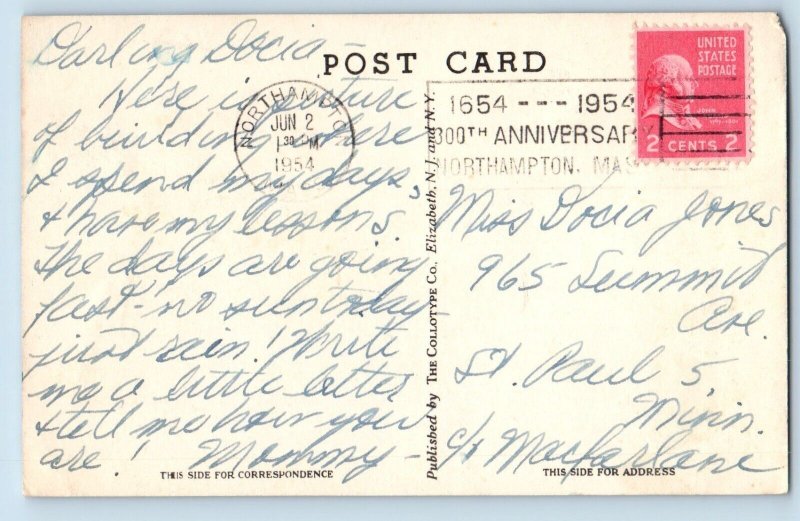 POST CARD
Darling Docia –
Here is picture
of building where
I spend my days,
& have my lessons.
The days are going
fast – no sun today
just rain! Write
me a little letter
& tell me how you
are! Mommy –
THIS SIDE FOR CORRESPONDENCE
NORTHAMPTON
JUN 2
1 30 PM
1954
1654 --- 1954
300TH ANNIVERSARY
NORTHAMPTON, MASS
UNITED
STATES
POSTAGE
2 CENTS 2
Published by THE COLLOTYPE CO., Elizabeth, N. J. and N. Y.
Miss Docia Jones
965 Summit
Ave.
St. Paul 5,
Minn.
c/o Macfarlane
THIS SIDE FOR ADDRESS